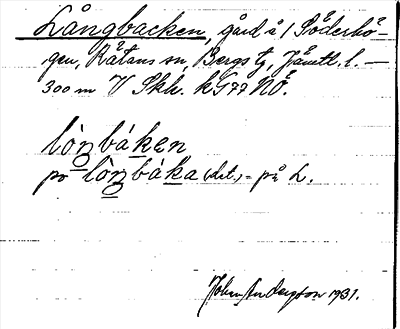 Långbacken, gård å i Söderhö-
gen, Råtans sn, Bergs tg, Jämtl. l. —
300 m V Skh. kG77 NÖ.
lòŋbáken
po lòŋbáka (dat.) = på L.
Johan Anderzson 1931.